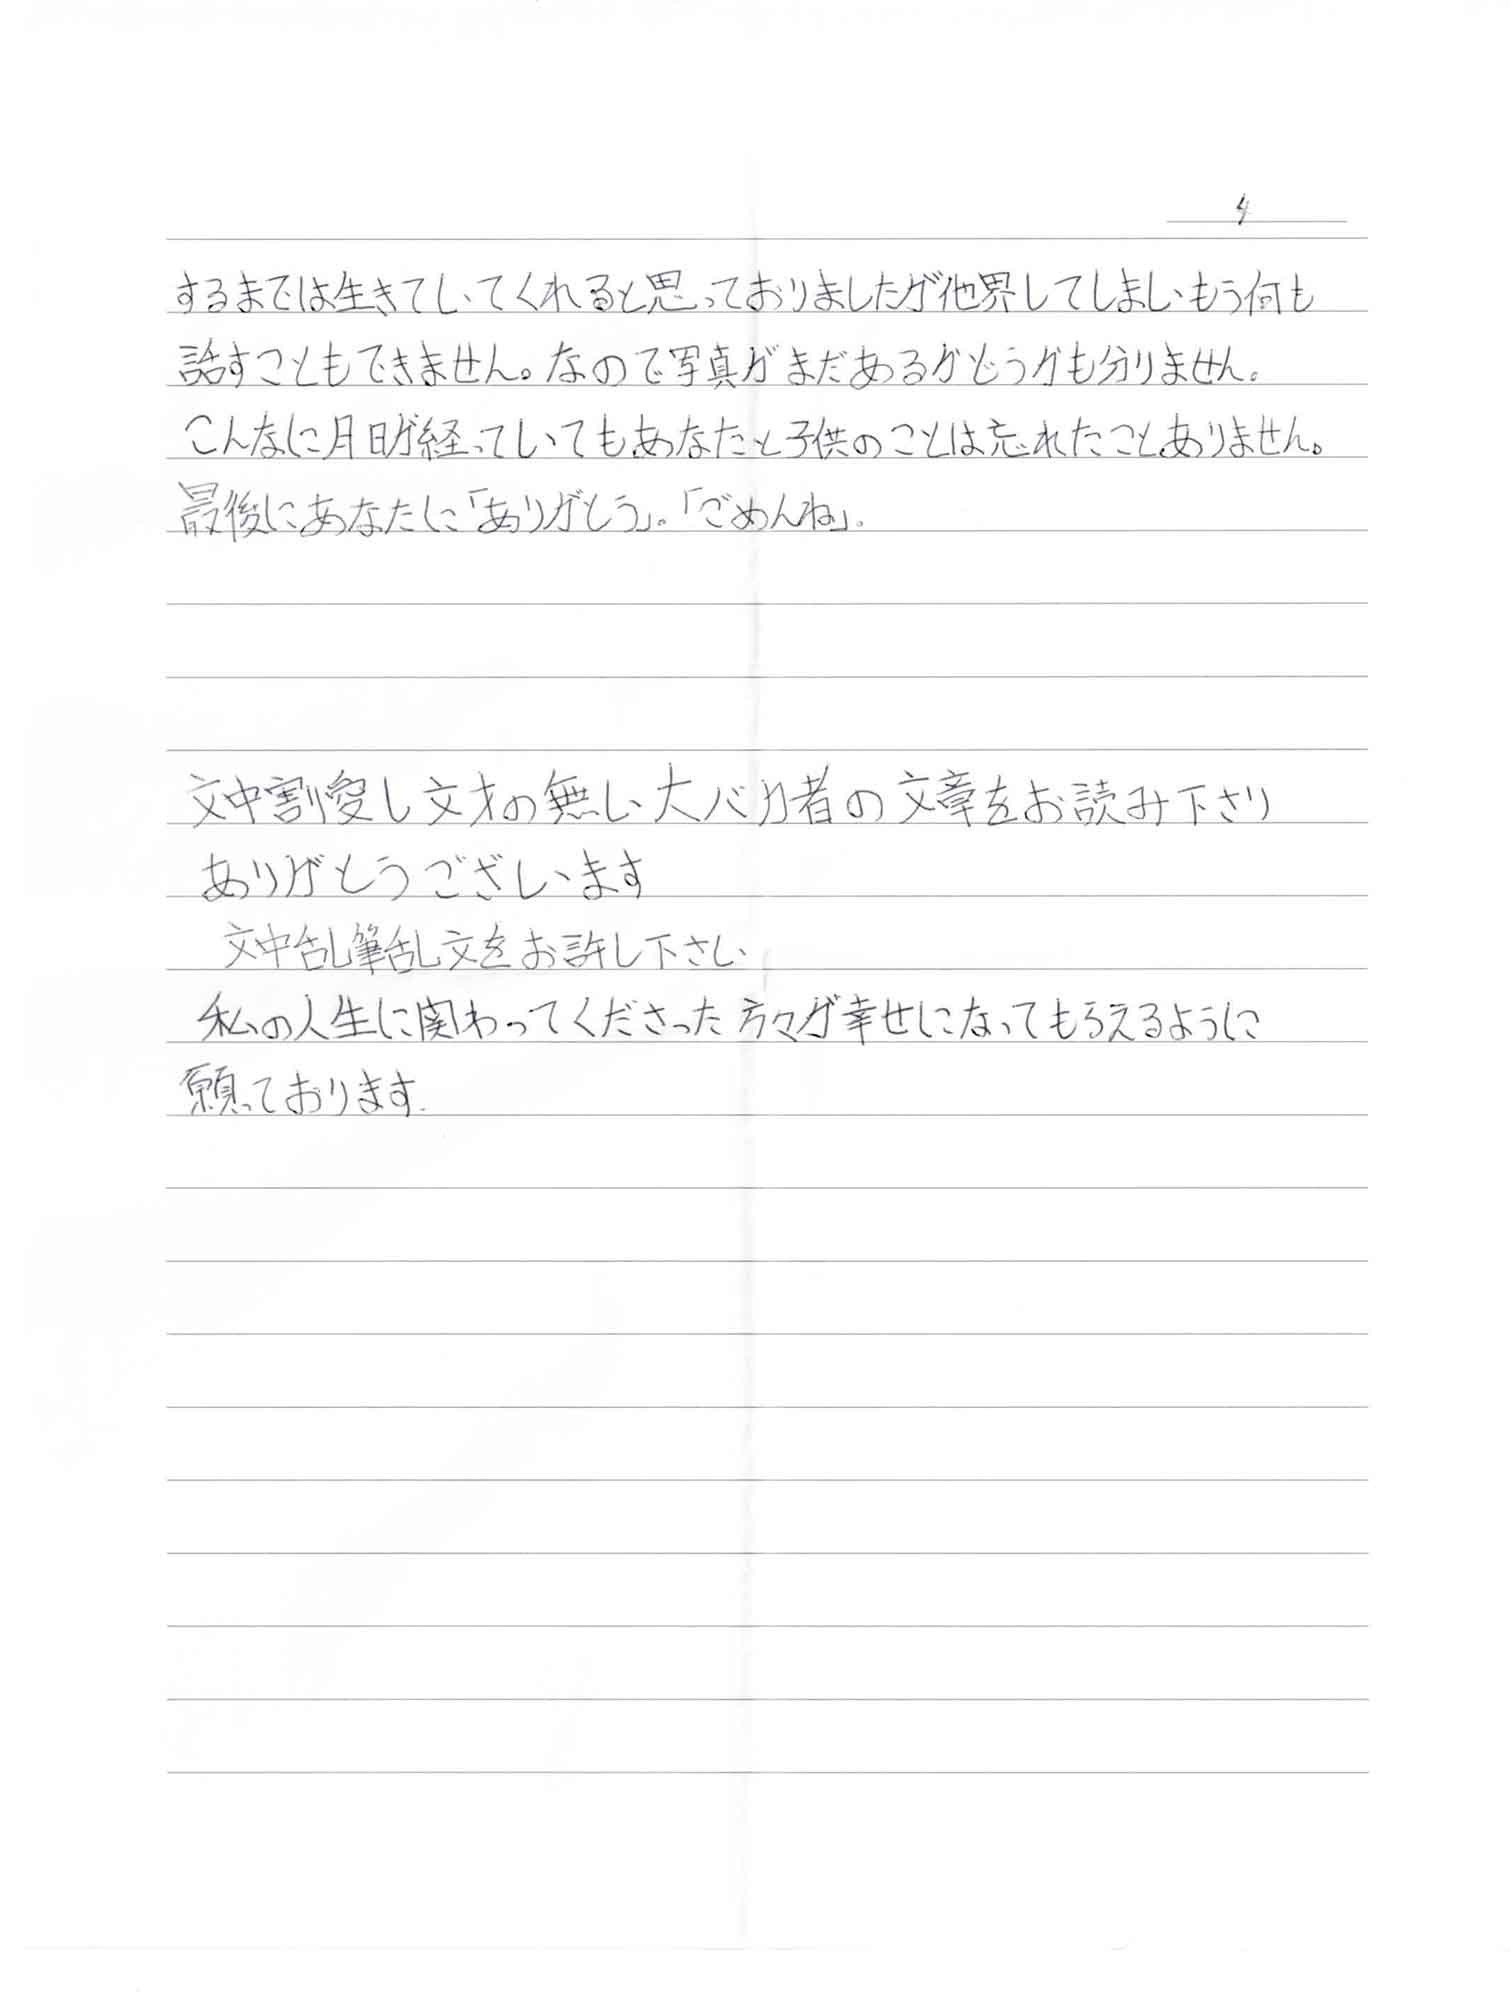 4
するまでは生きていてくれると思っておりましたが他界してしまいもう何も
話すこともできません。なので写真がまだあるかどうかも分りません。
こんなに月日が経っていてもあなたと子供のことは忘れたことありません。
最後にあなたに「ありがとう」。「ごめんね」.
文中割愛し文才の無い大バカ者の文章をお読み下さり
ありがとうございます
文中乱筆乱文をお許し下さい
私の人生に関わってくださった方々が幸せになってもらえるように
願っております.